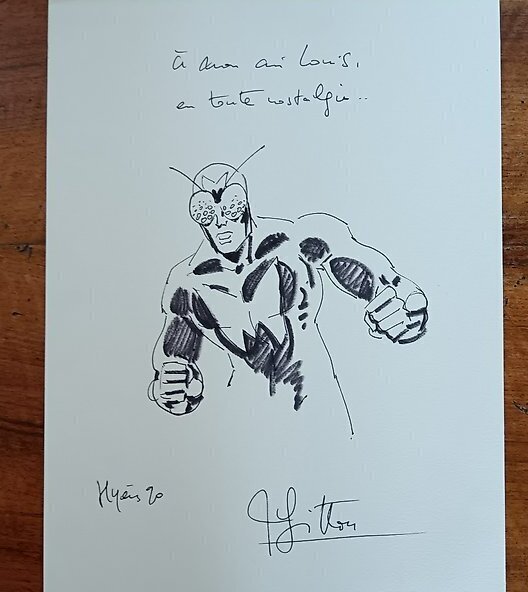 à mon ami Louis,
en toute nostalgie..
Hyères 90
JY Mitton